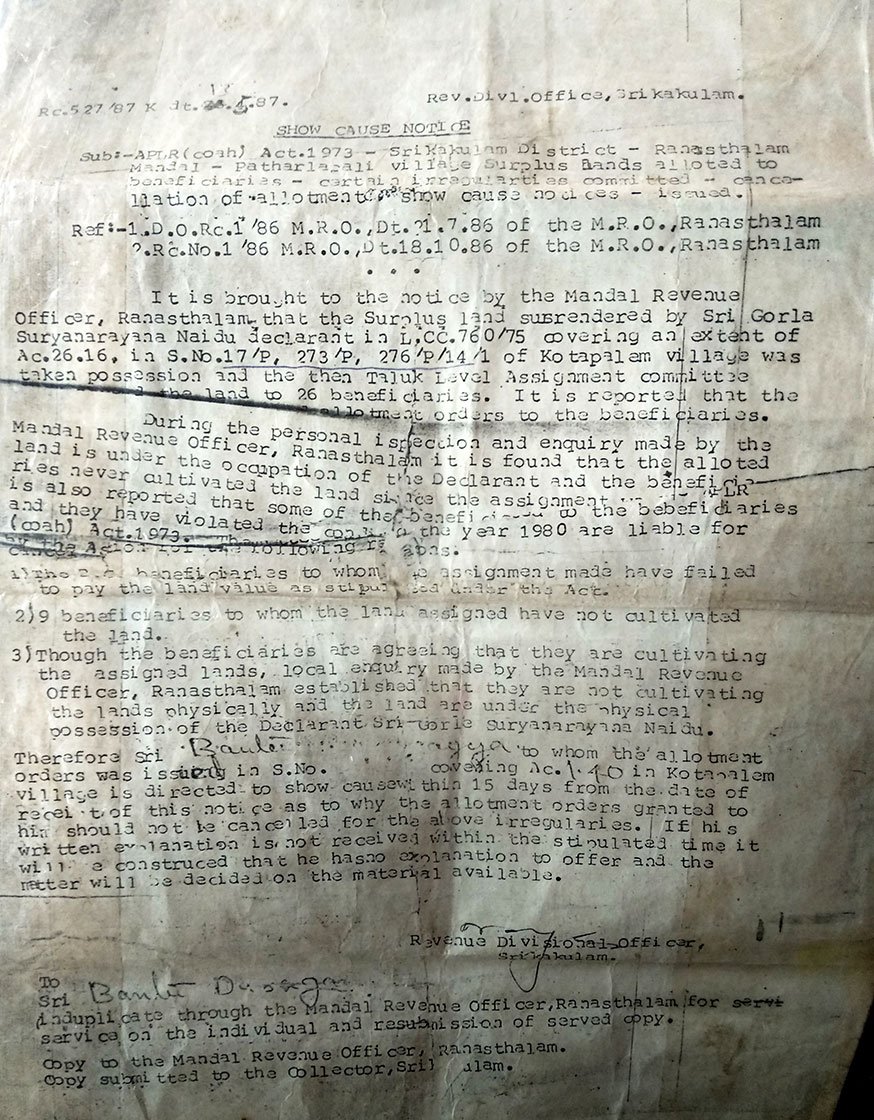 Rc.527/87 K dt. .5.87. Rev.Divl.Office,Srikakulam.
SHOW CAUSE NOTICE
Sub:-APLR(coah) Act.1973 - Srikakulam District - Ranasthalam
Mandal - Patharlapali village Surplus Lands alloted to
beneficiaries - certain irregularties committed - cance-
llation of allotment show cause notices - issued.
Ref:-1.D.O.Rc.1/86 M.R.O.,Dt.21.7.86 of the M.R.O.,Ranasthalam
2.Rc.No.1/86 M.R.O.,Dt.18.10.86 of the M.R.O.,Ranasthalam
...
It is brought to the notice by the Mandal Revenue
Officer, Ranasthalam, that the Surplus land susrendered by Sri Gorla
Suryanarayana Naidu declarant in L.CC.760/75 covering an extent of
Ac.26.16, in S.No.17/P, 273/P, 276/P/14/1 of Kotapalem village was
taken possession and the then Taluk Level Assignment committee
the land to 26 beneficiaries. It is reported that the
allotment orders to the beneficiaries.
During the personal ispection and enquiry made by the
Mandal Revenue Officer, Ranasthalam it is found that the alloted
land is under the occupation of the Declarant and the beneficia-
ries never cultivated the land since the assignment
is also reported that some of the beneficiaries to the bebeficiaries
and they have violated the APLR
(coah) Act.1973. the year 1980 are liable for
for the following reasons.
1)The beneficiaries to whom the assignment made have failed
to pay the land value as stipulated under the Act.
2)9 beneficiaries to whom the land assigned have not cultivated
the land.
3)Though the beneficiaries are agreeing that they are cultivating
the assigned lands, local enquiry made by the Mandal Revenue
Officer, Ranasthalam established that they are not cultivating
the lands physically and the land are under the physical
possession of the Declarant Sri Gorle Suryanarayana Naidu.
Therefore Sri to whom the allotment
orders was issued in S.No. covering Ac.1.40 in Kotapalem
village is directed to show causewithin 15 days from the date of
receipt of this notice as to why the allotment orders granted to
him should not be cancelled for the above irregularies. If his
written explanation is not received within the stipulated time it
will be construced that he hasno explanation to offer and the
matter will be decided on the material available.
Revenue Divisional Officer,
Srikakulam.
To
Sri
induplicate through the Mandal Revenue Officer,Ranasthalam for servi
service on the individual and resubmission of served copy.
Copy to the Mandal Revenue Officer, Ranasthalam.
Copy submitted to the Collector,Srikakulam.